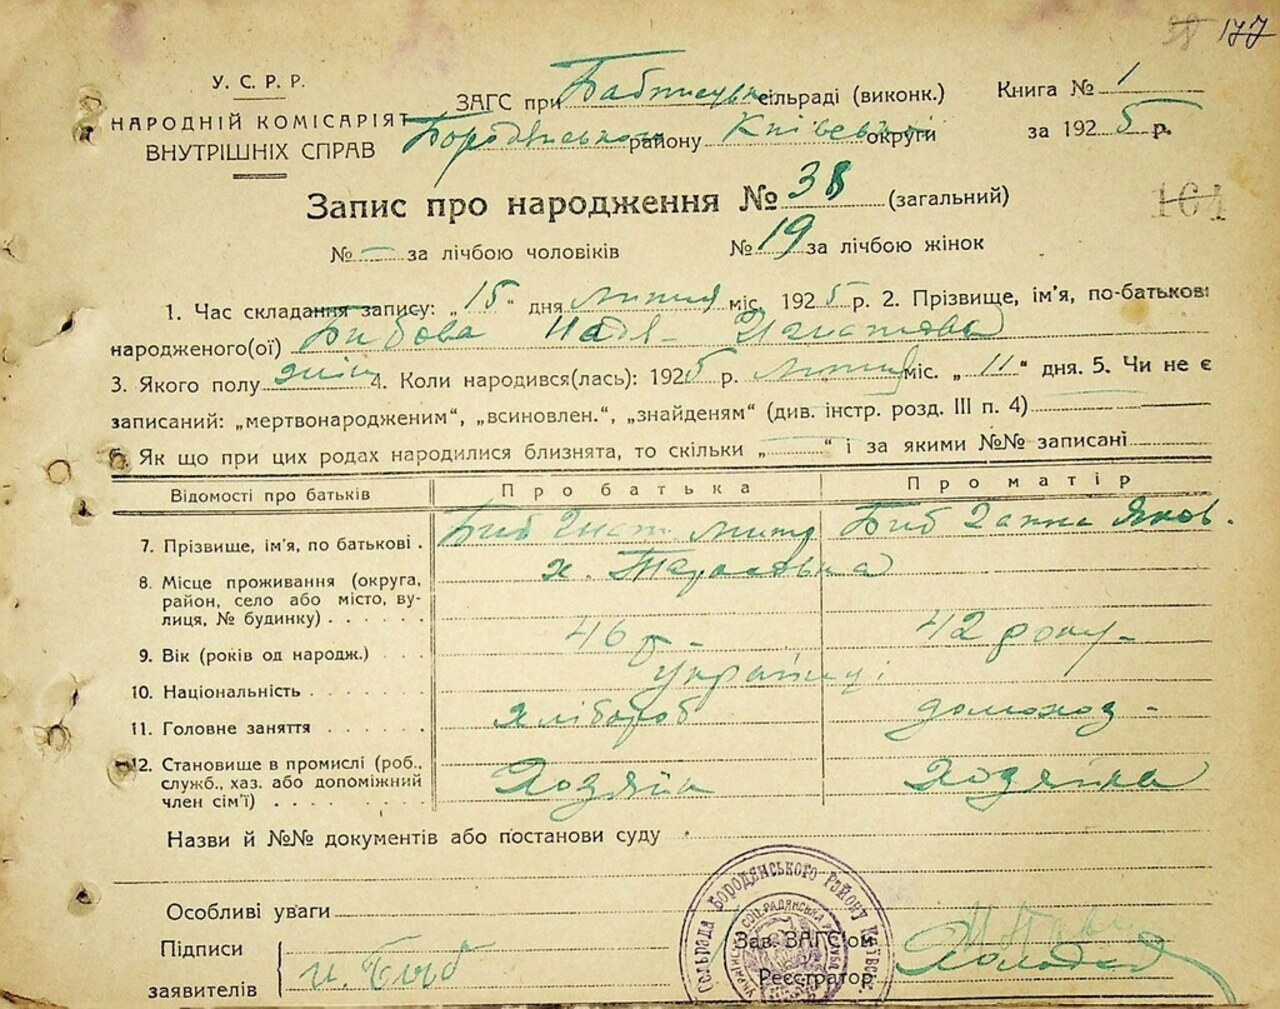 177
У. С. Р. Р.
НАРОДНІЙ КОМІСАРІЯТ
ВНУТРІШНІХ СПРАВ
ЗАГС при сільраді (виконк.)
Бородянського району Київської округи
Книга № 1
за 1925 р.
Запис про народження № 38 (загальний)
161
№ — за лічбою чоловіків № 19 за лічбою жінок
1. Час складання запису: „15“ дня липня міс. 1925 р. 2. Прізвище, ім'я, по-батькові
народженого(ої) Бибова Надя
3. Якого полу жін 4. Коли народився(лась): 1925 р. липня міс. „11“ дня. 5. Чи не є
записаний: „мертвонародженим“, „всиновлен.“, „знайденям“ (див. інстр. розд. III п. 4)
6. Як що при цих родах народилися близнята, то скільки „ “ і за якими №№ записані
Відомості про батьків Про батька Про матір
7. Прізвище, ім'я, по батькові . Биб Гнат Биб Ганна Яков.
8. Місце проживання (округа, район, село або місто, вулиця, № будинку) х. Тарасовка
9. Вік (років од народж.) 46 р - 42 року -
10. Національність українці
11. Головне заняття хлібороб домохоз -
12. Становище в промислі (роб., служб., хаз. або допоміжний член сім'ї) Хозяїн Хозяйка
Назви й №№ документів або постанови суду
Особливі уваги
Підписи
заявителів
и. Быб
Зав. ЗАГС'ом
Реєстратор
сільрада Бородянського району Київськ.